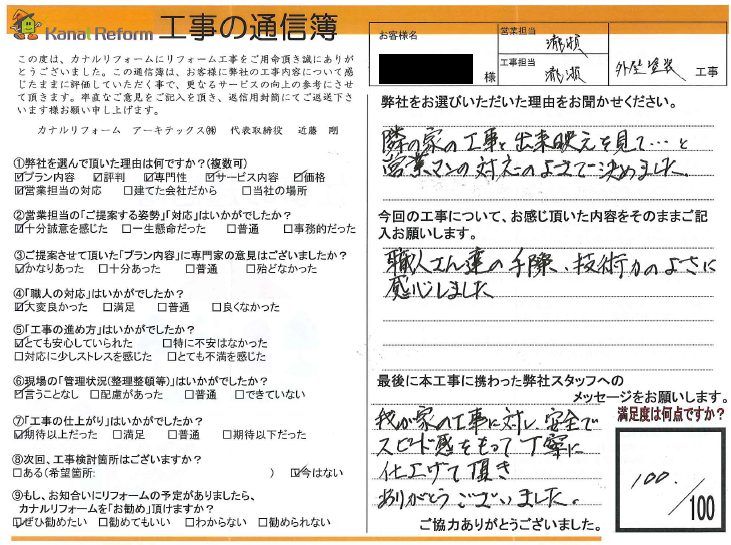 Kanal Reform 工事の通信簿
この度は、カナルリフォームにリフォーム工事をご用命頂き誠にありが
とうございました。この通信簿は、お客様に弊社の工事内容について感
じたままに評価していただく事で、更なるサービスの向上の参考にさせ
て頂きます。率直なご意見をご記入を頂き、返信用封筒にてご返送下さ
います様お願い申し上げます。
カナルリフォーム アーキテックス㈱ 代表取締役 近藤 剛
①弊社を選んで頂いた理由は何ですか?(複数可)
☑プラン内容 ☑評判 ☑専門性 ☑サービス内容 ☑価格
☑営業担当の対応 □建てた会社だから □当社の場所
②営業担当の「ご提案する姿勢」「対応」はいかがでしたか?
☑十分誠意を感じた □一生懸命だった □普通 □事務的だった
③ご提案させて頂いた「プラン内容」に専門家の意見はございましたか?
☑かなりあった □十分あった □普通 □殆どなかった
④「職人の対応」はいかがでしたか?
☑大変良かった □満足 □普通 □良くなかった
⑤「工事の進め方」はいかがでしたか?
☑とても安心していられた □特に不安はなかった
□対応に少しストレスを感じた □とても不満を感じた
⑥現場の「管理状況(整理整頓等)」はいかがでしたか?
☑言うことなし □配慮があった □普通 □できていない
⑦「工事の仕上がり」はいかがでしたか?
☑期待以上だった □満足 □普通 □期待以下だった
⑧次回、工事検討箇所はございますか?
□ある(希望箇所: ) ☑今はない
⑨もし、お知合いにリフォームの予定がありましたら、
カナルリフォームを「お勧め」頂けますか?
☑ぜひ勧めたい □勧めてもいい □わからない □勧められない
お客様名
様
営業担当
瀧瀬
工事担当
瀧瀬
外壁塗装 工事
弊社をお選びいただいた理由をお聞かせください。
隣の家の工事と出来映えを見て…と
営業マンの対応のよさで決めました。
今回の工事について、お感じ頂いた内容をそのままご記
入お願いします。
職人さん達の手際、技術力のよさに
感心しました
最後に本工事に携わった弊社スタッフへの
メッセージをお願いします。
我が家の工事に対し、安全で
スピード感をもって丁寧に
仕上げて頂き
ありがとうございました。
満足度は何点ですか?
100.
/100
ご協力ありがとうございました。